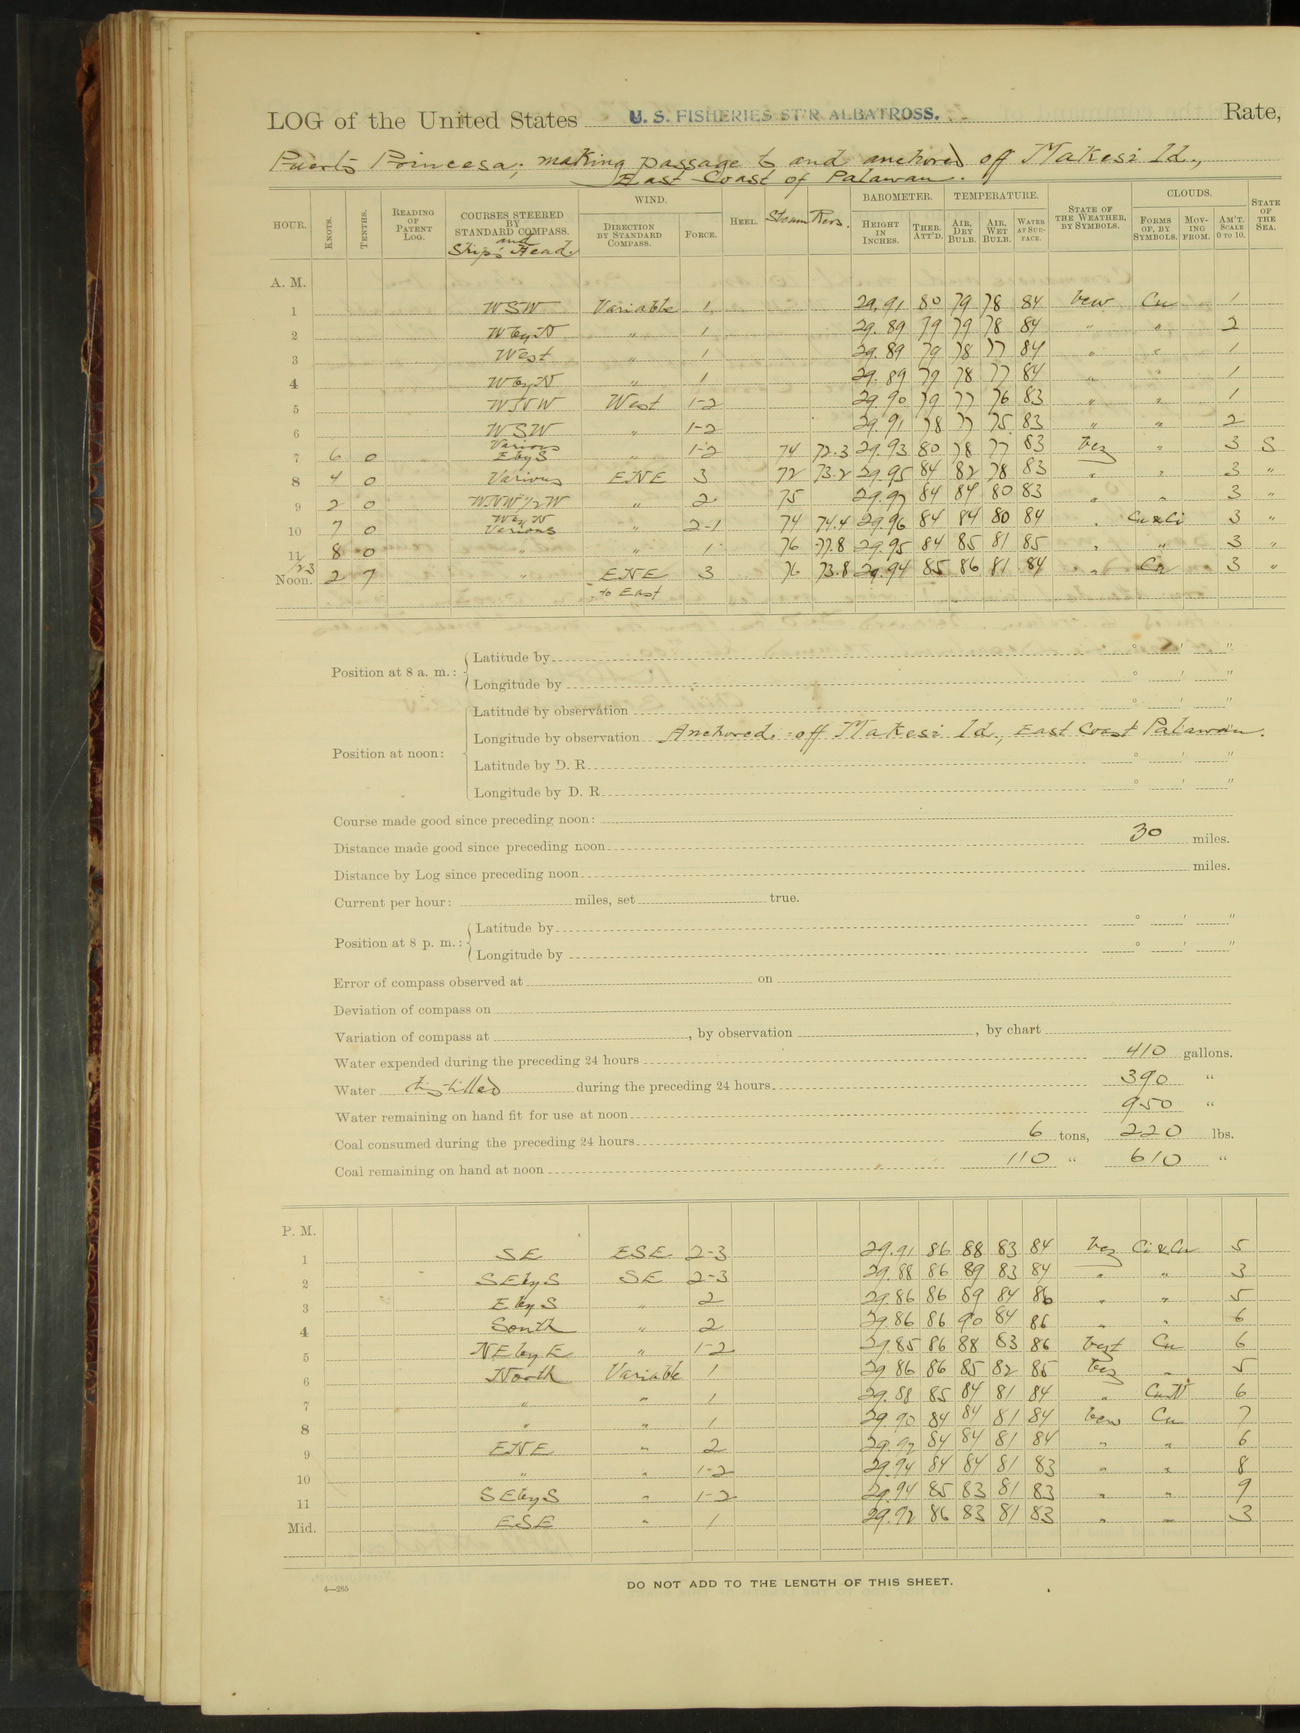 LOG of the United States U. S. FISHERIES ST'R ALBATROSS. Rate,
Puerto Princesa; making passage to and anchored off Makesi Id.,
East Coast of Palawan.
HOUR. KNOTS. TENTHS. READING OF PATENT LOG. COURSES STEERED BY STANDARD COMPASS. and Ship's Head. WIND. DIRECTION BY STANDARD COMPASS. FORCE. HEEL. Steam Revs. BAROMETER. HEIGHT IN INCHES. THER. ATT'D. TEMPERATURE. AIR, DRY BULB. AIR, WET BULB. WATER AT SURFACE. STATE OF THE WEATHER, BY SYMBOLS. CLOUDS. FORMS OF, BY SYMBOLS. MOVING FROM. AM'T. SCALE 0 TO 10. STATE OF THE SEA.
A. M.
1 WSW Variable 1 29.91 80 79 78 84 bcw Cu 1
2 W by N " 1 29.89 79 79 78 84 " " 2
3 West " 1 29.89 79 78 77 84 " " 1
4 W by N " 1 29.89 79 78 77 84 " " 1
5 WNW West 1-2 29.90 79 77 76 83 " " 1
6 WSW " 1-2 29.91 78 77 75 83 " " 2
7 6 0 Various E by S " 1-2 74 72.3 29.93 80 78 77 83 bcz " 3 S
8 4 0 Various ENE 3 72 73.2 29.95 84 82 78 83 " " 3 "
9 2 0 WNW 1/2 W " 2 75 29.97 84 84 80 83 " " 3 "
10 7 0 W by N Various " 2-1 74 74.4 29.96 84 84 80 84 " Cu & Ci 3 "
11 8 0 " " 1 76 77.8 29.95 84 85 81 85 " " 3 "
Noon. 2 7 " ENE to East 3 76 73.8 29.94 85 86 81 84 " Cu 3 "
Position at 8 a. m.: Latitude by ° ' "
Longitude by ° ' "
Latitude by observation ° ' "
Position at noon: Longitude by observation Anchored off Makesi Id., East Coast Palawan.
Latitude by D. R. ° ' "
Longitude by D. R. ° ' "
Course made good since preceding noon:
Distance made good since preceding noon 30 miles.
Distance by Log since preceding noon miles.
Current per hour: miles, set true.
Position at 8 p. m.: Latitude by ° ' "
Longitude by ° ' "
Error of compass observed at on
Deviation of compass on
Variation of compass at , by observation , by chart
Water expended during the preceding 24 hours 410 gallons.
Water distilled during the preceding 24 hours 390 "
Water remaining on hand fit for use at noon 950 "
Coal consumed during the preceding 24 hours 6 tons, 220 lbs.
Coal remaining on hand at noon 110 " 610 "
P. M.
1 SE ESE 2-3 29.91 86 88 83 84 bcz Ci & Cu 5
2 SE by S SE 2-3 29.88 86 89 83 84 " " 3
3 E by S " 2 29.86 86 89 84 86 " " 5
4 South " 2 29.86 86 90 84 86 " " 6
5 NE by E " 1-2 29.85 86 88 83 86 Cu 6
6 North Variable 1 29.86 86 85 82 85 bcz " 5
7 " " 1 29.88 85 84 81 84 " 6
8 " " 1 29.90 84 84 81 84 bcw Cu 7
9 ENE " 2 29.92 84 84 81 84 " " 6
10 " " 1-2 29.94 84 84 81 83 " " 8
11 SE by S " 1-2 29.94 85 83 81 83 " " 9
Mid. ESE " 1 29.92 86 83 81 83 " " 3
4—265
DO NOT ADD TO THE LENGTH OF THIS SHEET.